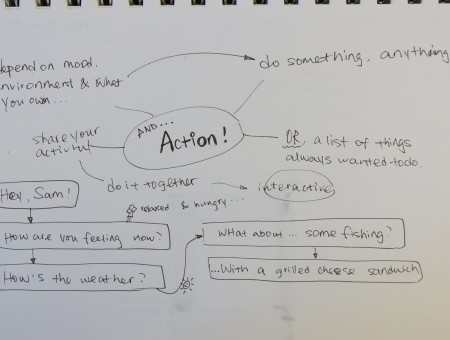 depend on mood.
environment & what
you own...
do something, anything
AND...
Action!
share your
activity
OR, a list of things
always wanted to do.
do it together
interactive
Hey, Sam!
relaxed & hungry...
How are you feeling now?
What about... some fishing?
How's the weather?
...With a grilled cheese sandwich